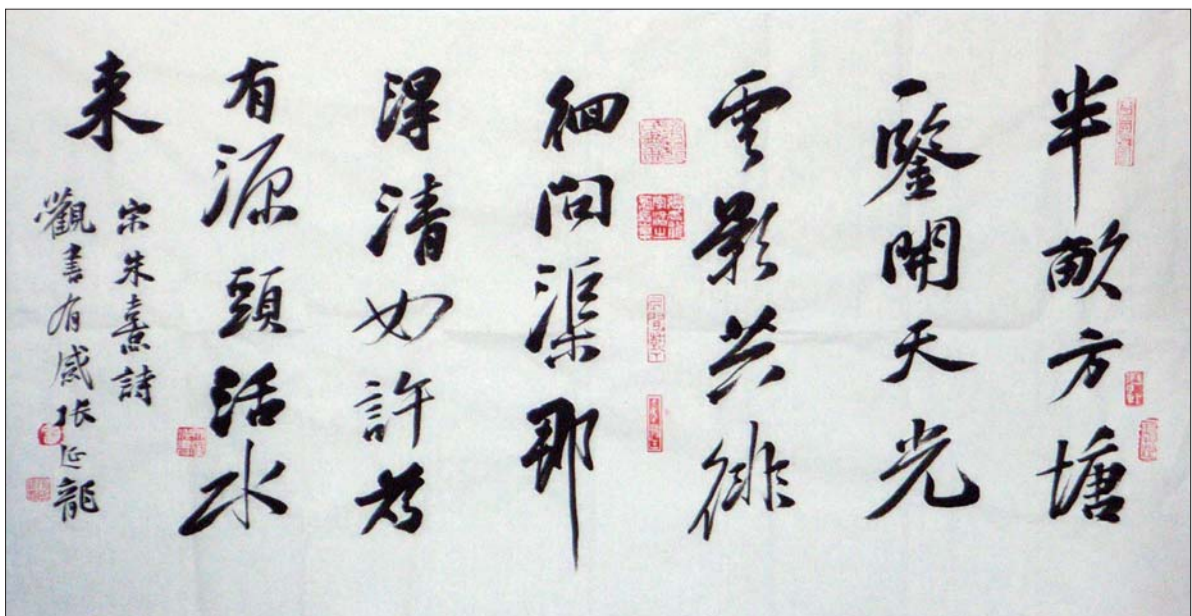 半畝方塘
一鑒開天光
雲影共徘
徊問渠那
得清如許為
有源頭活水
来
宋朱熹詩
觀書有感张延龍